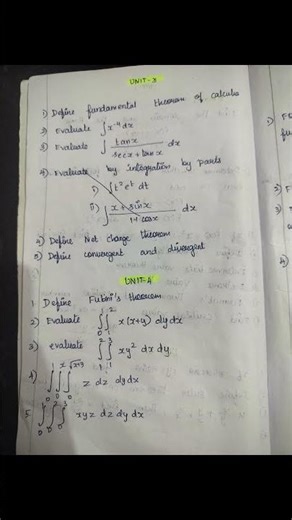 UNIT-3
1) Define fundamental theorem of calculus
2) Evaluate ∫x⁻⁴dx
3) Evaluate ∫ tanx / secx + tanx dx
4) Evaluate by integration by parts
i) ∫t²eᵗ dt
ii) ∫ x + sinx / 1+ cosx dx
4) Define Net change theorem
5) Define convergent and divergent
UNIT-4
1 Define Fubini's theorem
2) Evaluate ∫∫ x(x+y) dydx
3) evaluate ∫∫ xy² dx dy
4) ∫∫∫ z dz dydx
5 ∫∫∫ xyz dz dy dx